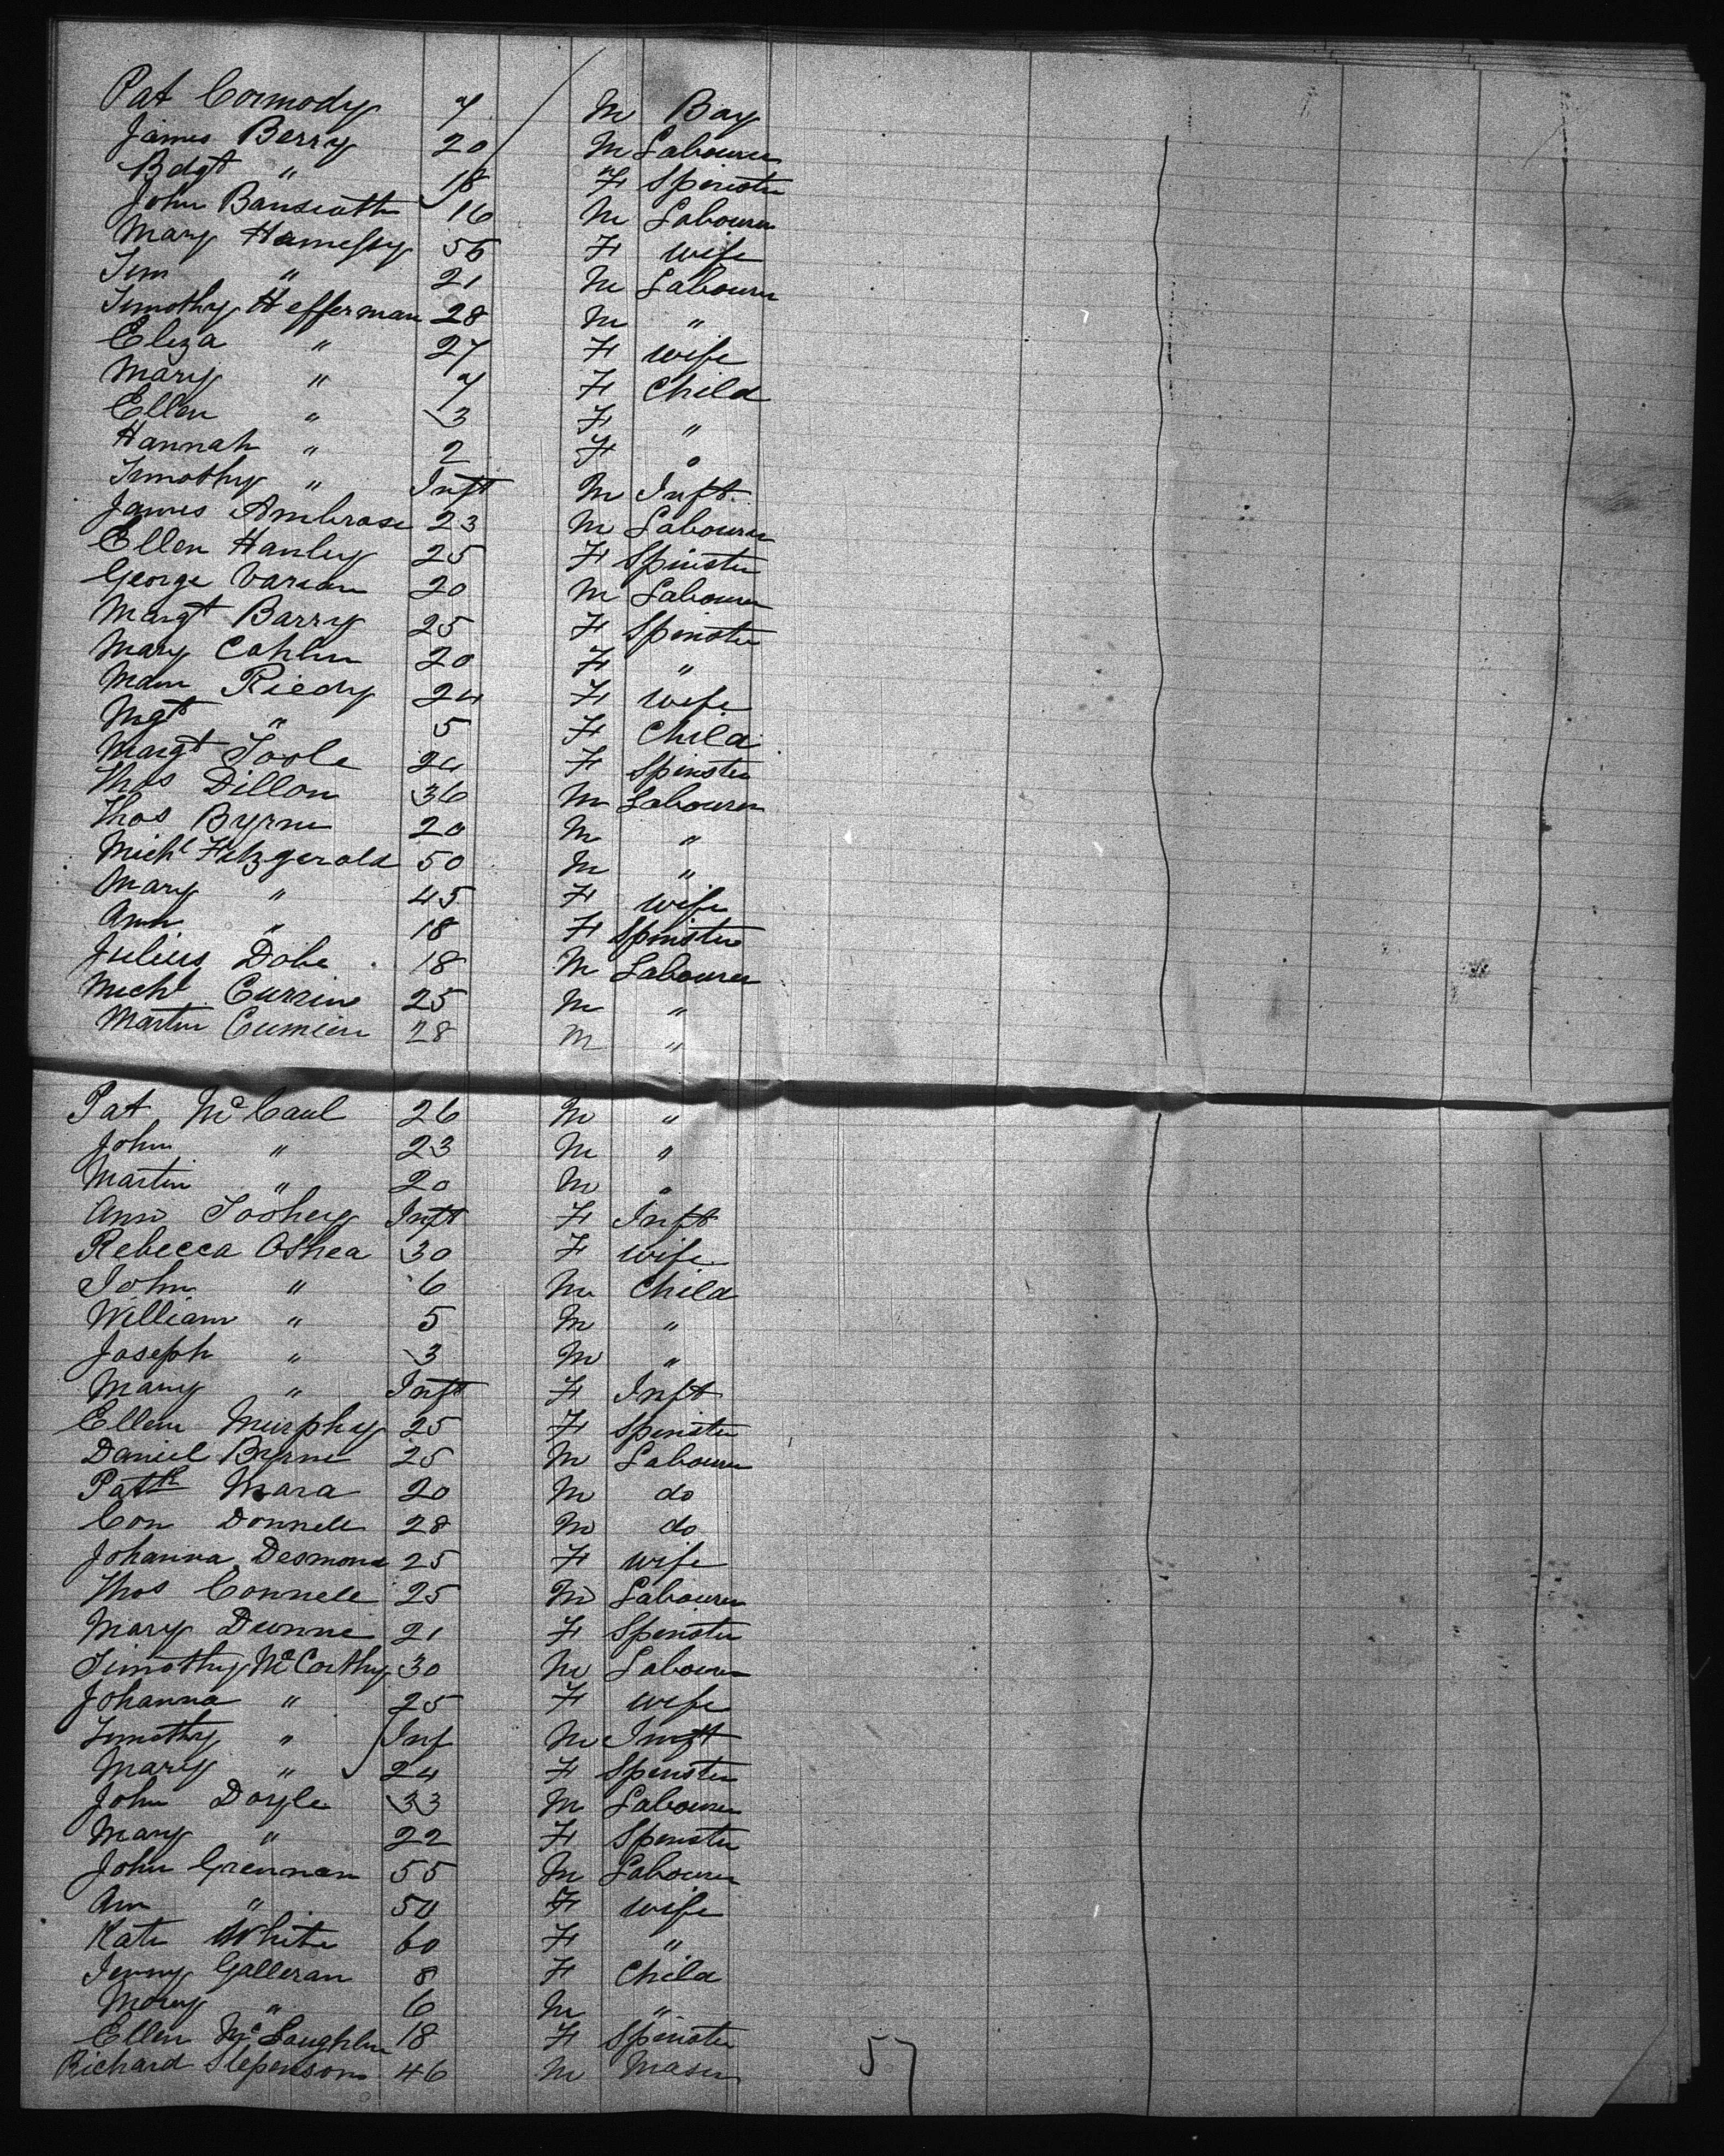 Pat Cormody 7 M Boy
James Berry 20 M Labourer
Bdgt " 18 F Spinster
John 16 M Labourer
Mary Hennessy 56 F wife
Tim " 21 M Labourer
Timothy Hefferman 28 M "
Eliza " 27 F wife
Mary " 7 F Child
Ellen " 3 F "
Hannah " 2 F "
Timothy " Inft M Inft
James Ambrose 23 M Labourer
Ellen Hanley 25 F Spinster
George Varian 20 M Labourer
Margt Barry 25 F Spinster
Mary 20 F "
Riedy 24 F wife
Mgt " 5 F Child
Margt Toole 24 F Spinster
Thos Dillon 36 M Labourer
Thos Byrne 20 M "
Michl Fitzgerald 50 M "
Mary " 45 F wife
Ann " 18 F Spinster
Julius Dobe 18 M Labourer
Michl 25 M "
Martin 28 M "
Pat McCaul 26 M "
John " 23 M "
Martin " 20 M "
Ann Toohey Inft F Inft
Rebecca OShea 30 F wife
John " 6 M Child
William " 5 M "
Joseph " 3 M "
Mary " Inft F Inft
Ellen Murphy 25 F Spinster
Daniel Byrne 25 M Labourer
Patk Mara 20 M do
Con Donnell 28 M do
Johanna Desmond 25 F wife
Thos Connell 25 M Labourer
Mary Dunne 21 F Spinster
Timothy McCarthy 30 M Labourer
Johanna " 25 F wife
Timothy " Inf M Inft
Mary " 24 F Spinster
John Doyle 33 M Labourer
Mary " 22 F Spinster
John Grennan 55 M Labourer
Ann " 50 F wife
Kate White 60 F "
Jenny Galleran 8 F Child
Mary " 6 M "
Ellen McLaughlin 18 F Spinster
Richard Stepenson 46 M Mason
57